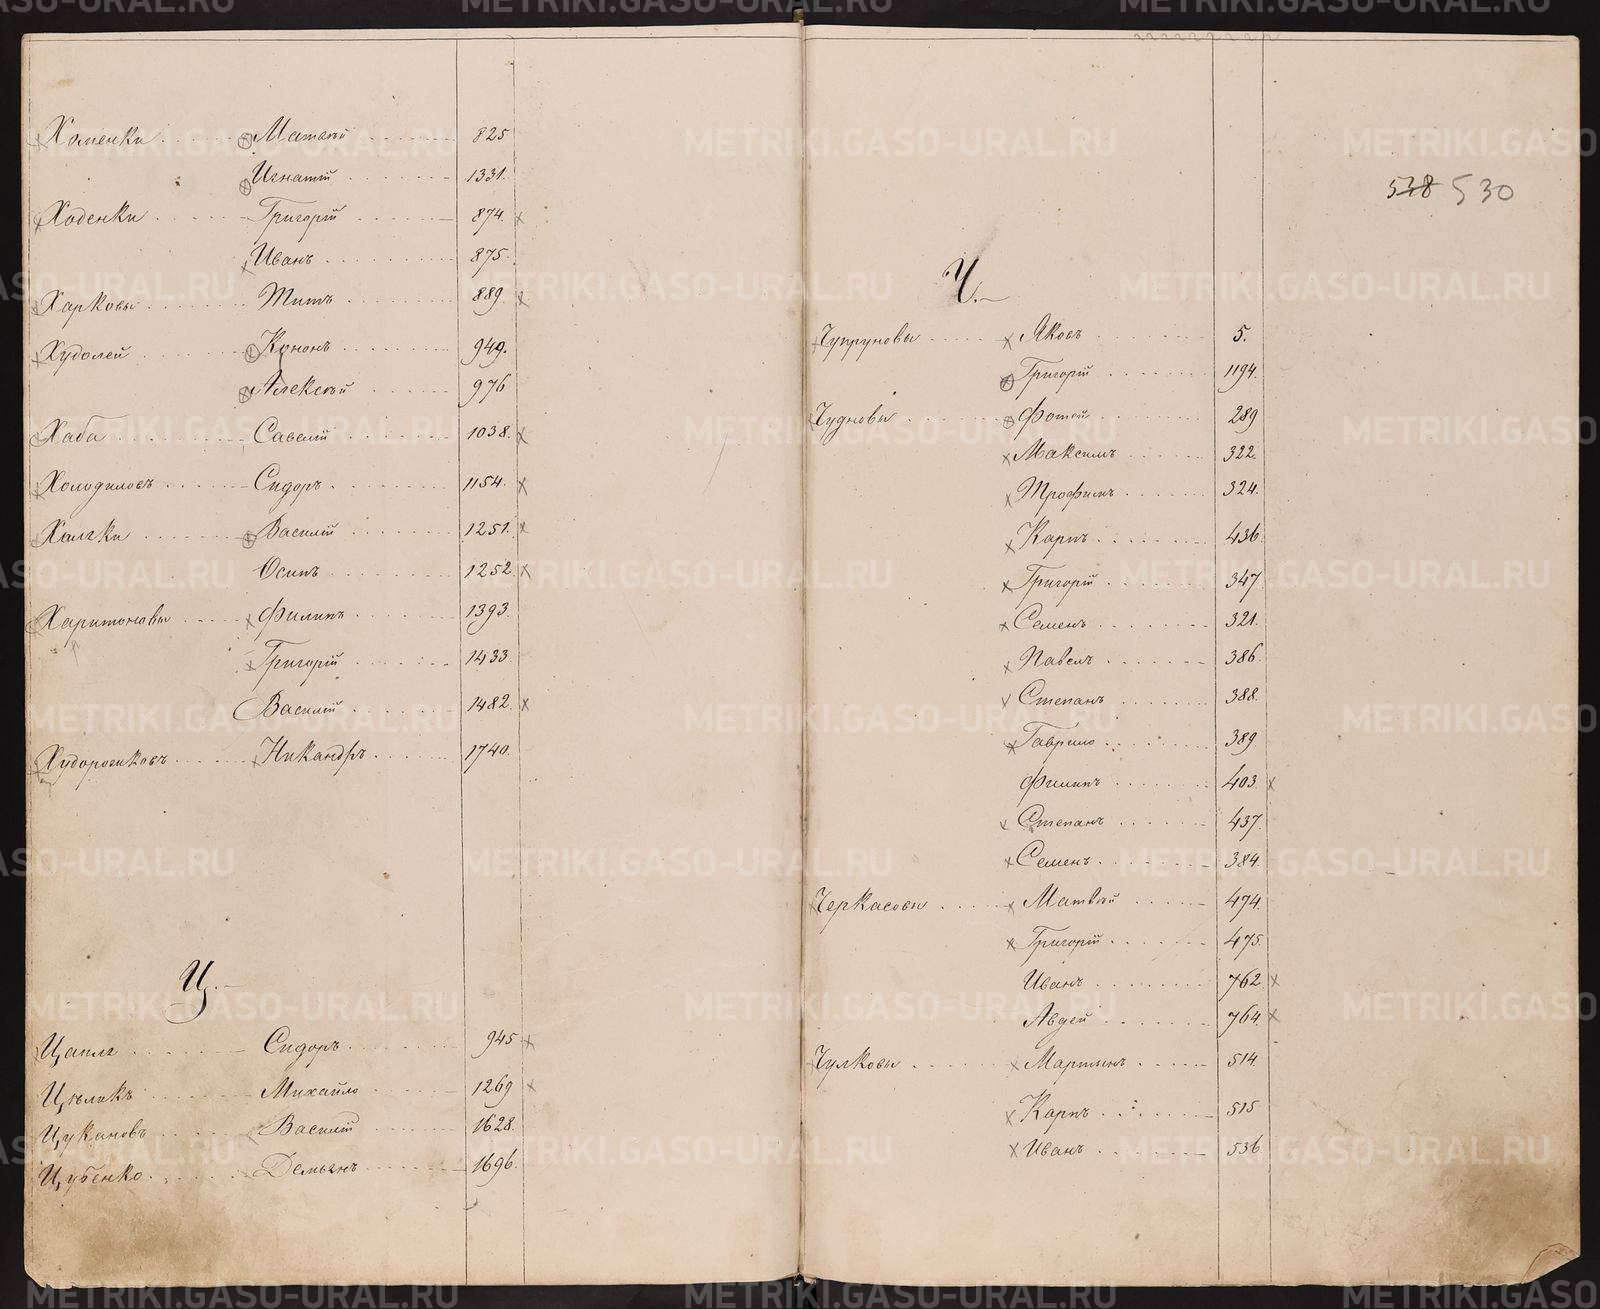 Хоменки Матвѣй 825
Игнатій 1331.
Ходенки Григорій 874. х
Иванъ 875.
Харковы Титъ 889. х
Худолей Кононъ 949.
Алексѣй 976
Хаба Савелій 1038. х
Холодиловъ Сидоръ 1154. х
Василій 1251. х
Осипъ 1252. х
Харитоновы Филипъ 1393.
Григорій 1433.
Василій 1482. х
Никандръ 1740.
Ц.
Цапля Сидоръ 945 х
Цѣликъ Михайло 1269 х
Цукановъ Василій 1628.
Цубенко Демьянъ 1696.
538 530
Ч.
Чупруновы Яковъ 5.
Григорій 1194.
Чудновы Фотей 289
Максимъ 322.
Трофимъ 324.
Карпъ 436.
Григорій 347.
Семенъ 321.
Павелъ 386.
Степанъ 388.
Гаврило 389.
Филипъ 403. х
Степанъ 437.
Семенъ 384.
Черкасовы Матвѣй 474.
Григорій 475.
Иванъ 762. х
Авдей 764. х
Чулковы Мартынъ 514.
Карпъ 515
Иванъ 536.
METRIKI.GASO-URAL.RU